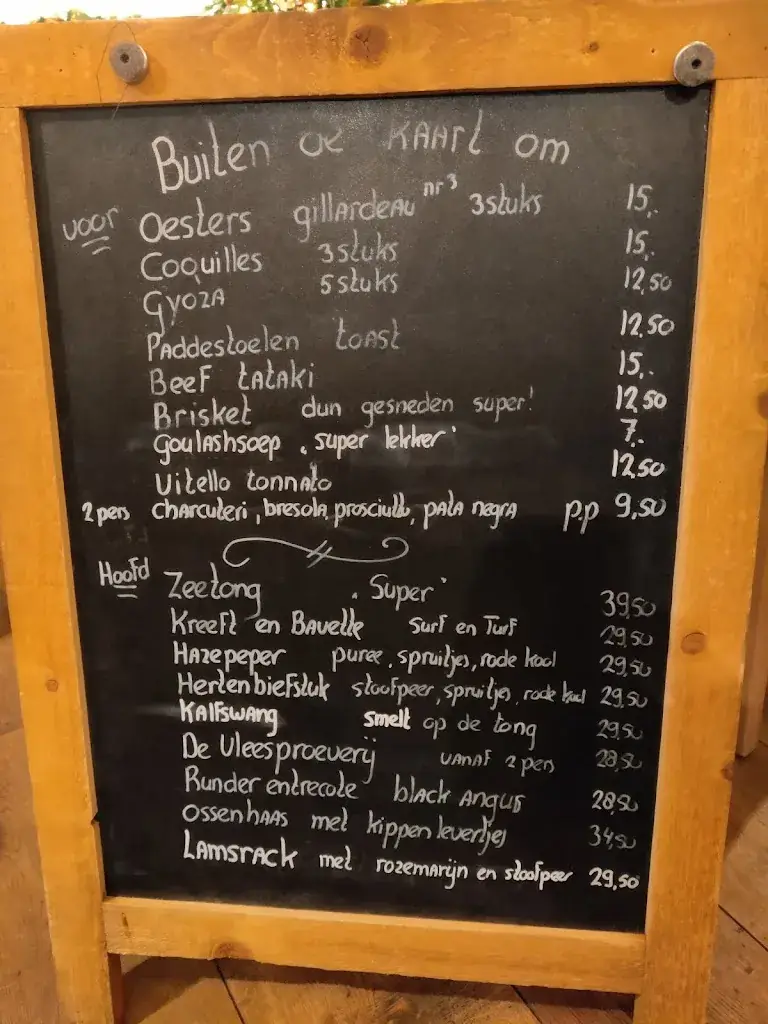 Buiten de kaart om
voor Oesters gillardeau nr 3 3stuks 15,-
Coquilles 3stuks 15,-
Gyoza 5stuks 12,50
Paddestoelen toast 12,50
Beef tataki 15,-
Brisket dun gesneden super! 12,50
goulashsoep "super lekker" 7,-
Vitello tonnato 12,50
2 pers charcuteri, bresola, prosciutto, pata negra p.p 9,50
Hoofd Zeetong "Super" 39,50
Kreeft en Bavette Surf en Turf 29,50
Hazepeper puree, spruitjes, rode kool 29,50
Hertenbiefstuk stoofpeer, spruitjes, rode kool 29,50
Kalfswang smelt op de tong 29,50
De Vleesproeverij vanaf 2 pers 28,50
Runder entrecote black angus 28,50
Ossenhaas met kippenlevertjes 34,50
Lamsrack met rozemarijn en stoofpeer 29,50